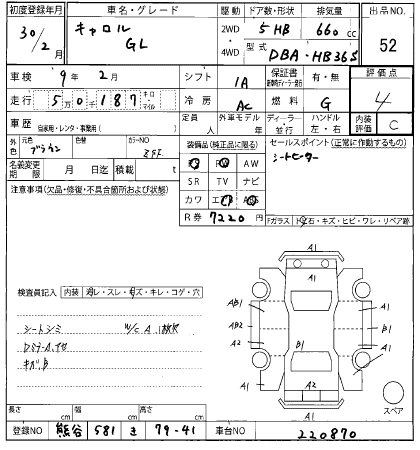 初度登録年月 車名・グレード 駆動 ドア数・形状 排気量 出品NO.
30/2月 キャロル GL 2WD 4WD 5HB 660cc 52
型式 DBA-HB36S
車検 9年2月 シフト IA 保証書 有・無 評価点
走行 5万0千187 キロ マイル 冷房 AC 燃料 G 4
車歴 自家用・レンタ・事業用( ) 定員 人 外車モデル 年 ディーラー・並行 ハンドル 左・右 内装評価 C
外色 元色 ブラウン 色替 カラーNO ZFF 装備品(純正品に限る) セールスポイント(正常に作動するもの)
シートヒーター
名義変更期限 月 日迄 積載 t AW
注意事項(欠品・修復・不具合箇所および状態) SR TV ナビ
カワ
R券 7220円 Fガラス トビ石・キズ・ヒビ・ワレ・リペア跡
A1
検査員記入 内装 汚レ・スレ・キズ・キレ・コゲ・穴
A1
AB1
シートシミ W/C A
AB2
A2 B1 A1
キガB
A1 A2 A1
A1
スペア
長さ cm 幅 cm 高さ cm
登録NO 熊谷 581 き 79-41 車台NO 220870